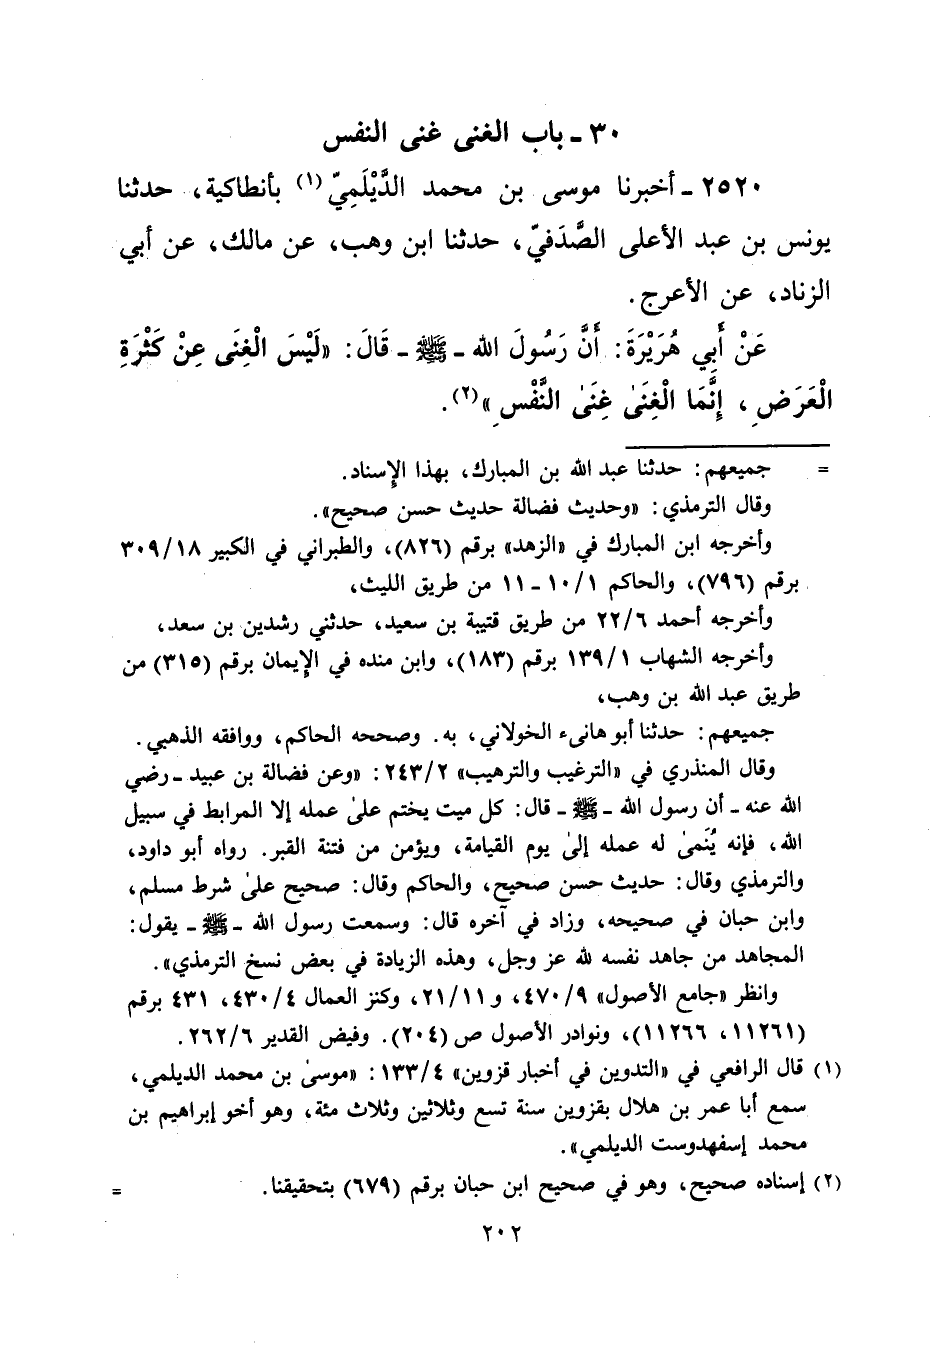 ٣٠ ـ باب الغنى غنى النفس
٢٥٢٠ ـ أخبرنا موسى بن محمد الدَّيْلَمِيّ (١) بأنطاكية، حدثنا
يونس بن عبد الأعلى الصَّدَفيّ، حدثنا ابن وهب، عن مالك، عن أبي
الزناد، عن الأعرج.
عَنْ أَبِي هُرَيْرَةَ: أَنَّ رَسُولَ الله ـ ﷺ ـ قَالَ: «لَيْسَ الْغِنَى عِنْ كَثْرَةِ
الْعَرَضِ، إِنَّمَا الْغِنَىٰ غِنَىٰ النَّفْسِ»(٢).
= جميعهم: حدثنا عبد الله بن المبارك، بهذا الإسناد.
وقال الترمذي: «وحديث فضالة حديث حسن صحيح».
وأخرجه ابن المبارك في «الزهد» برقم (٨٢٦)، والطبراني في الكبير ٣٠٩/١٨
برقم (٧٩٦)، والحاكم ١٠/١ ـ ١١ من طريق الليث،
وأخرجه أحمد ٢٢/٦ من طريق قتيبة بن سعيد، حدثني رشدين بن سعد،
وأخرجه الشهاب ١٣٩/١ برقم (١٨٣)، وابن منده في الإيمان برقم (٣١٥) من
طريق عبد الله بن وهب،
جميعهم: حدثنا أبو هانىء الخولاني، به. وصححه الحاكم، ووافقه الذهبي.
وقال المنذري في «الترغيب والترهيب» ٢٤٣/٢: «وعن فضالة بن عبيد ـ رضي
الله عنه ـ أن رسول الله ـ ﷺ ـ قال: كل ميت يختم علىٰ عمله إلا المرابط في سبيل
الله، فإنه يُنَمىٰ له عمله إلىٰ يوم القيامة، ويؤمن من فتنة القبر. رواه أبو داود،
والترمذي وقال: حديث حسن صحيح، والحاكم وقال: صحيح علىٰ شرط مسلم،
وابن حبان في صحيحه، وزاد في آخره قال: وسمعت رسول الله ـ ﷺ ـ يقول:
المجاهد من جاهد نفسه لله عز وجل، وهذه الزيادة في بعض نسخ الترمذي».
وانظر «جامع الأصول» ٤٧٠/٩، و ٢١/١١، وكنز العمال ٤٣٠/٤، ٤٣١ برقم
(١١٢٦١، ١١٢٦٦)، ونوادر الأصول ص (٢٠٤). وفيض القدير ٢٦٢/٦.
(١) قال الرافعي في «التدوين في أخبار قزوين» ١٣٣/٤: «موسىٰ بن محمد الديلمي،
سمع أبا عمر بن هلال بقزوين سنة تسع وثلاثين وثلاث مئة، وهو أخو إبراهيم بن
محمد إسفهدوست الديلمي».
(٢) إسناده صحيح، وهو في صحيح ابن حبان برقم (٦٧٩) بتحقيقنا. =
٢٠٢